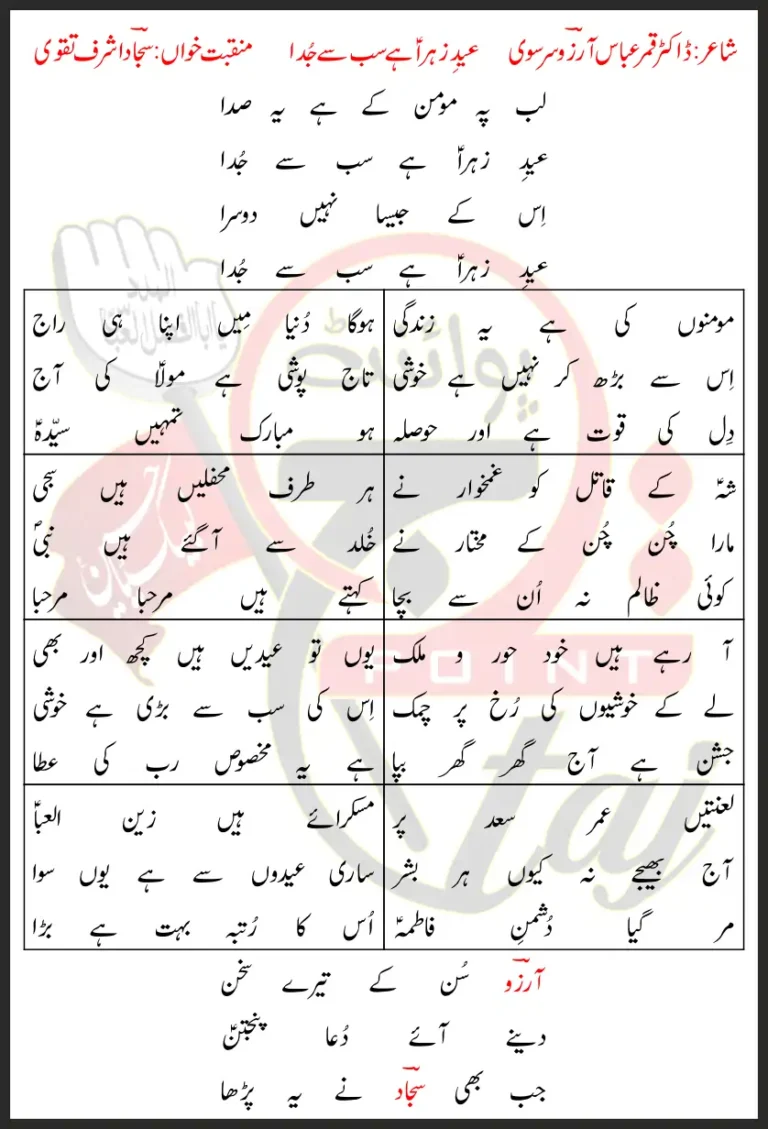 شاعر: ڈاکٹر قمر عباس آرزو سرسوی عیدِ زہراؑ ہے سب سے جُدا منقبت خواں: سجاد اشرف تقوی
لب پہ مومن کے ہے یہ صدا
عیدِ زہراؑ ہے سب سے جُدا
اِس کے جیسا نہیں دوسرا
عیدِ زہراؑ ہے سب سے جُدا
مومنوں کی ہے یہ زندگی
اِس سے بڑھ کر نہیں ہے خوشی
دِل کی قوت ہے اور حوصلہ
ہوگا دُنیا مِیں اپنا ہی راج
تاج پوشی ہے مولاؑ کی آج
ہو مبارک تمہیں سیّدہؑ
شہؑ کے قاتل کو غمخوار نے
مارا چُن چُن کے مختار نے
کوئی ظالم نہ اُن سے بچا
ہر طرف محفلیں ہیں سجی
خُلد سے آگئے ہیں نبیؐ
کہتے ہیں مرحبا مرحبا
آ رہے ہیں خود حور و ملک
لے کے خوشیوں کی رُخ پر چمک
جشن ہے آج گھر گھر بپا
یوں تو عیدیں ہیں کچھ اور بھی
اِس کی سب سے بڑی ہے خوشی
ہے یہ مخصوص رب کی عطا
لعنتیں عمر سعد پر
آج بھیجے نہ کیوں ہر بشر
مر گیا دُشمنِ فاطمہؑ
مسکرائے ہیں زین العباؑ
ساری عیدوں سے ہے یوں سوا
اُس کا رُتبہ بہت ہے بڑا
آرزو سُن کے تیرے سخن
دینے آئے دُعا پنجتنؑ
جب بھی سجاد نے یہ پڑھا
پوائنٹ
POINT
taj